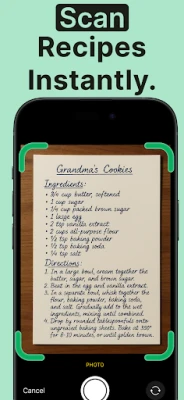 Scan
Recipes
Instantly.
Grandma's Cookies
Ingredients:
• 3/4 cup butter, softened
• 1 cup sugar
• 1/4 cup packed brown sugar
• 1 large egg
• 2 tsp vanilla extract
• 2 cups all-purpose flour
• 1/2 tsp baking powder
• 1/2 tsp baking soda
• 1/4 tsp salt
Directions:
1. In a large bowl, cream together the
butter, sugar, and brown sugar.
2. Beat in the egg and vanilla extract.
3. In a separate bowl, whisk together the
flour, baking powder, baking soda,
and salt. Gradually add to the wet
ingredients, mixing until combined.
4. Drop by rounded tablespoonfuls onto
ungreased baking sheets. Bake at 350°
for 8-10 minutes, or until golden brown.
PHOTO
Cancel